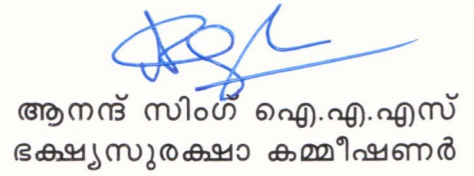 ആനന്ദ് സിംഗ് ഐ.എ.എസ്
ഭക്ഷ്യസുരക്ഷാ കമ്മീഷണർ